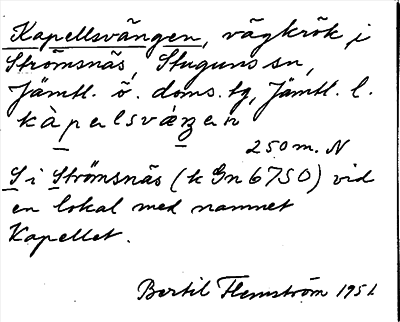 Kapellsvängen, vägkrök i
Strömsnäs, Stuguns sn,
Jämtl. ö. doms. tg, Jämtl. l.
kàpelsväŋen
250 m. N
S i Strömsnäs (k Gn 6750) vid
en lokal med namnet
Kapellet.
Bertil Flemström 1951